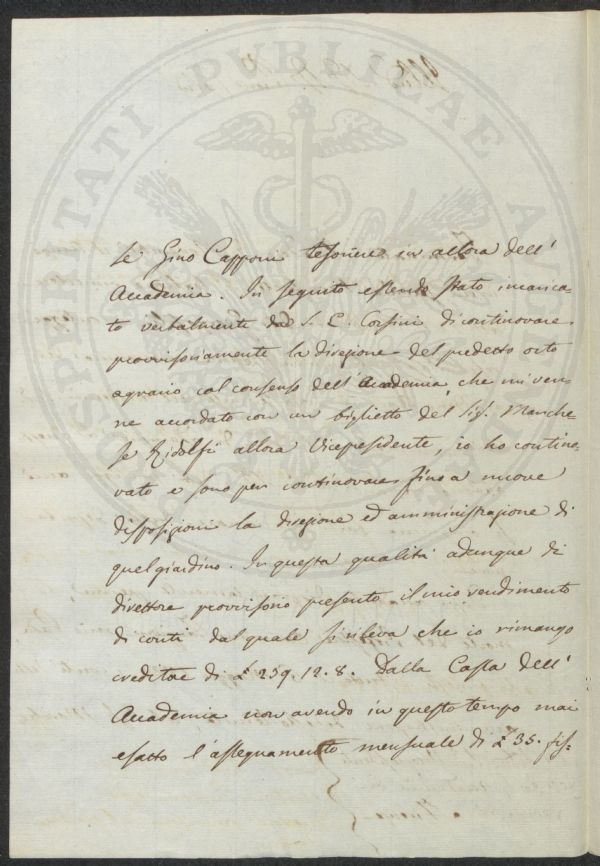 PROSPERITATI PUBLICAE AU
se Gino Capponi tesoriere in allora dell'
Accademia. In seguito essendo stato incarica-
to verbalmente da S. E. Corsini di continovare
provvisoriamente la direzione del predetto orto
agrario col consenso dell'Accademia, che mi ven-
ne accordato con un biglietto del Sig. Marche-
se Ridolfi allora Vicepresidente, io ho contino-
vato e sono per continovare fino a nuove
disposizioni la direzione ed amministrazione di
quel giardino. In questa qualità adunque di
direttore provvisorio presento il mio rendimento
di conti dal quale si rileva che io rimango
creditore di £ 259. 12. 8. Dalla Cassa dell'
Accademia non avendo in questo tempo mai
esatto l'assegnamento mensuale di £ 35. fis-